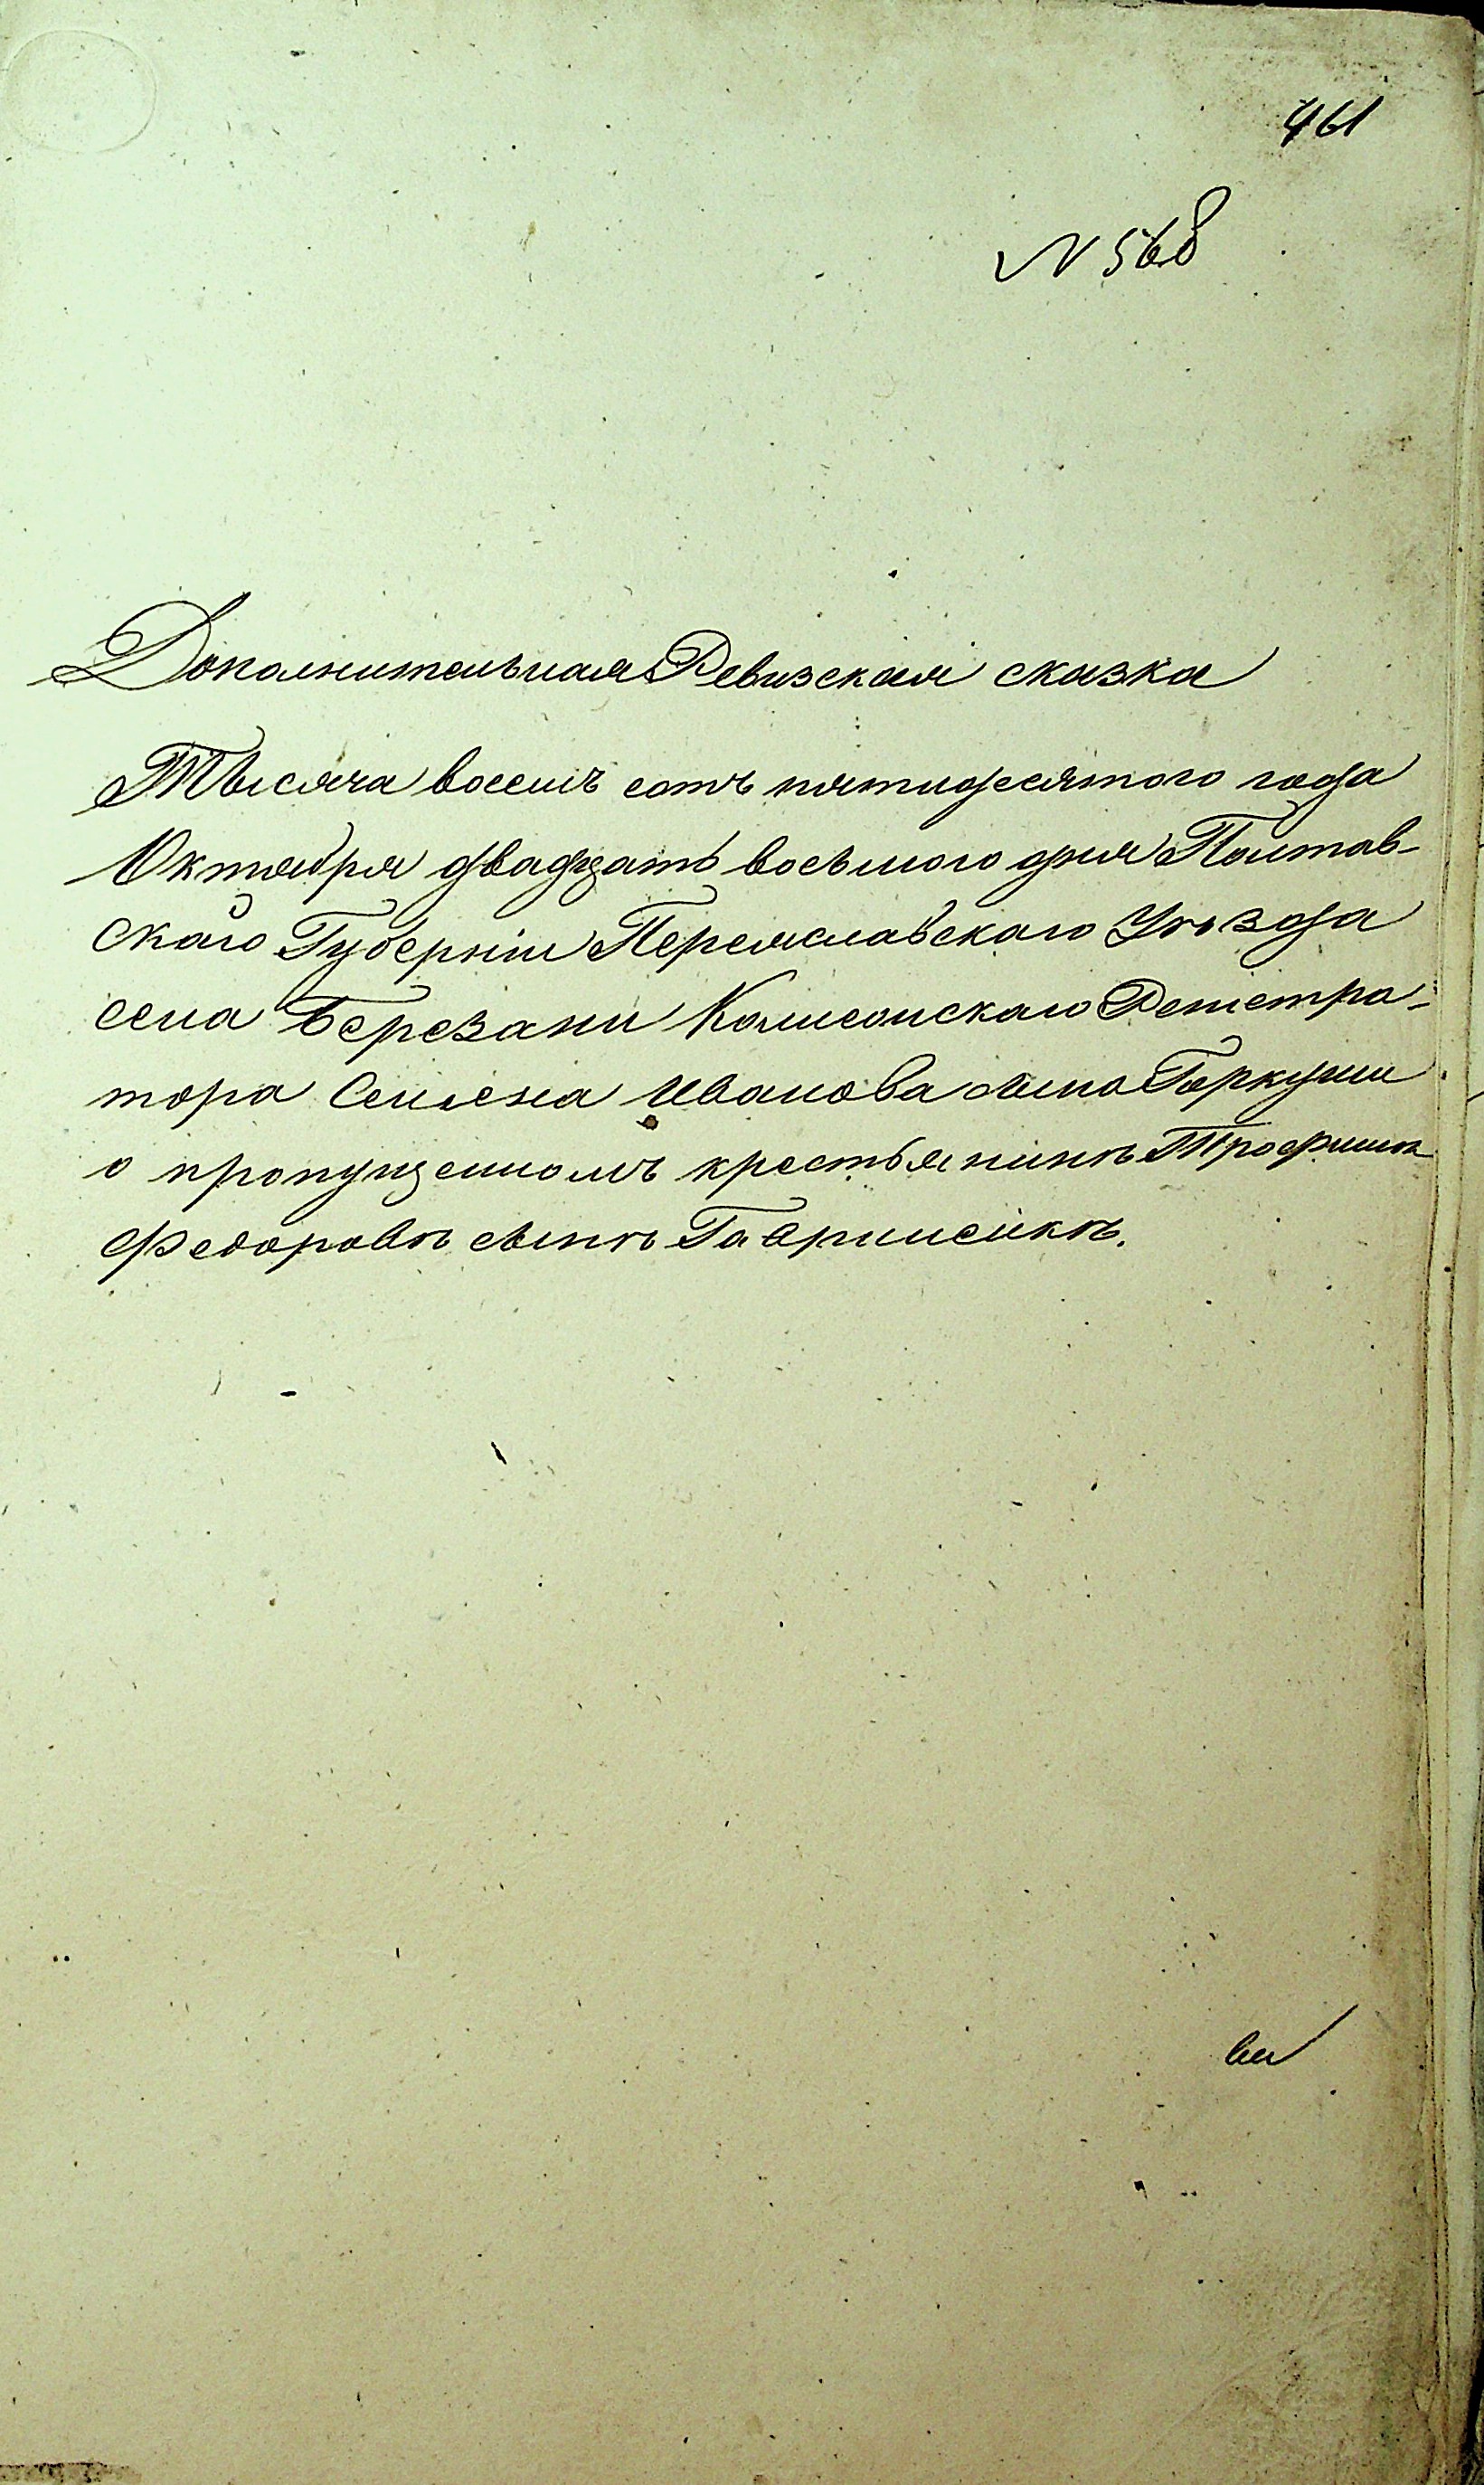 461
N 568
Дополнительная Ревизская сказка
Тысяча восемъ сотъ пятидесятого года
Октября двадцать восьмого дня Полтав-
скаго Губерніи Переяславскаго Уѣзда
села Березани Колисоискаго Регистра-
тора Семена Иванова сына Гаркуши
о пропущенномъ крестьянинѣ Трофимѣ
Федоровѣ сынѣ Гаврисикѣ.